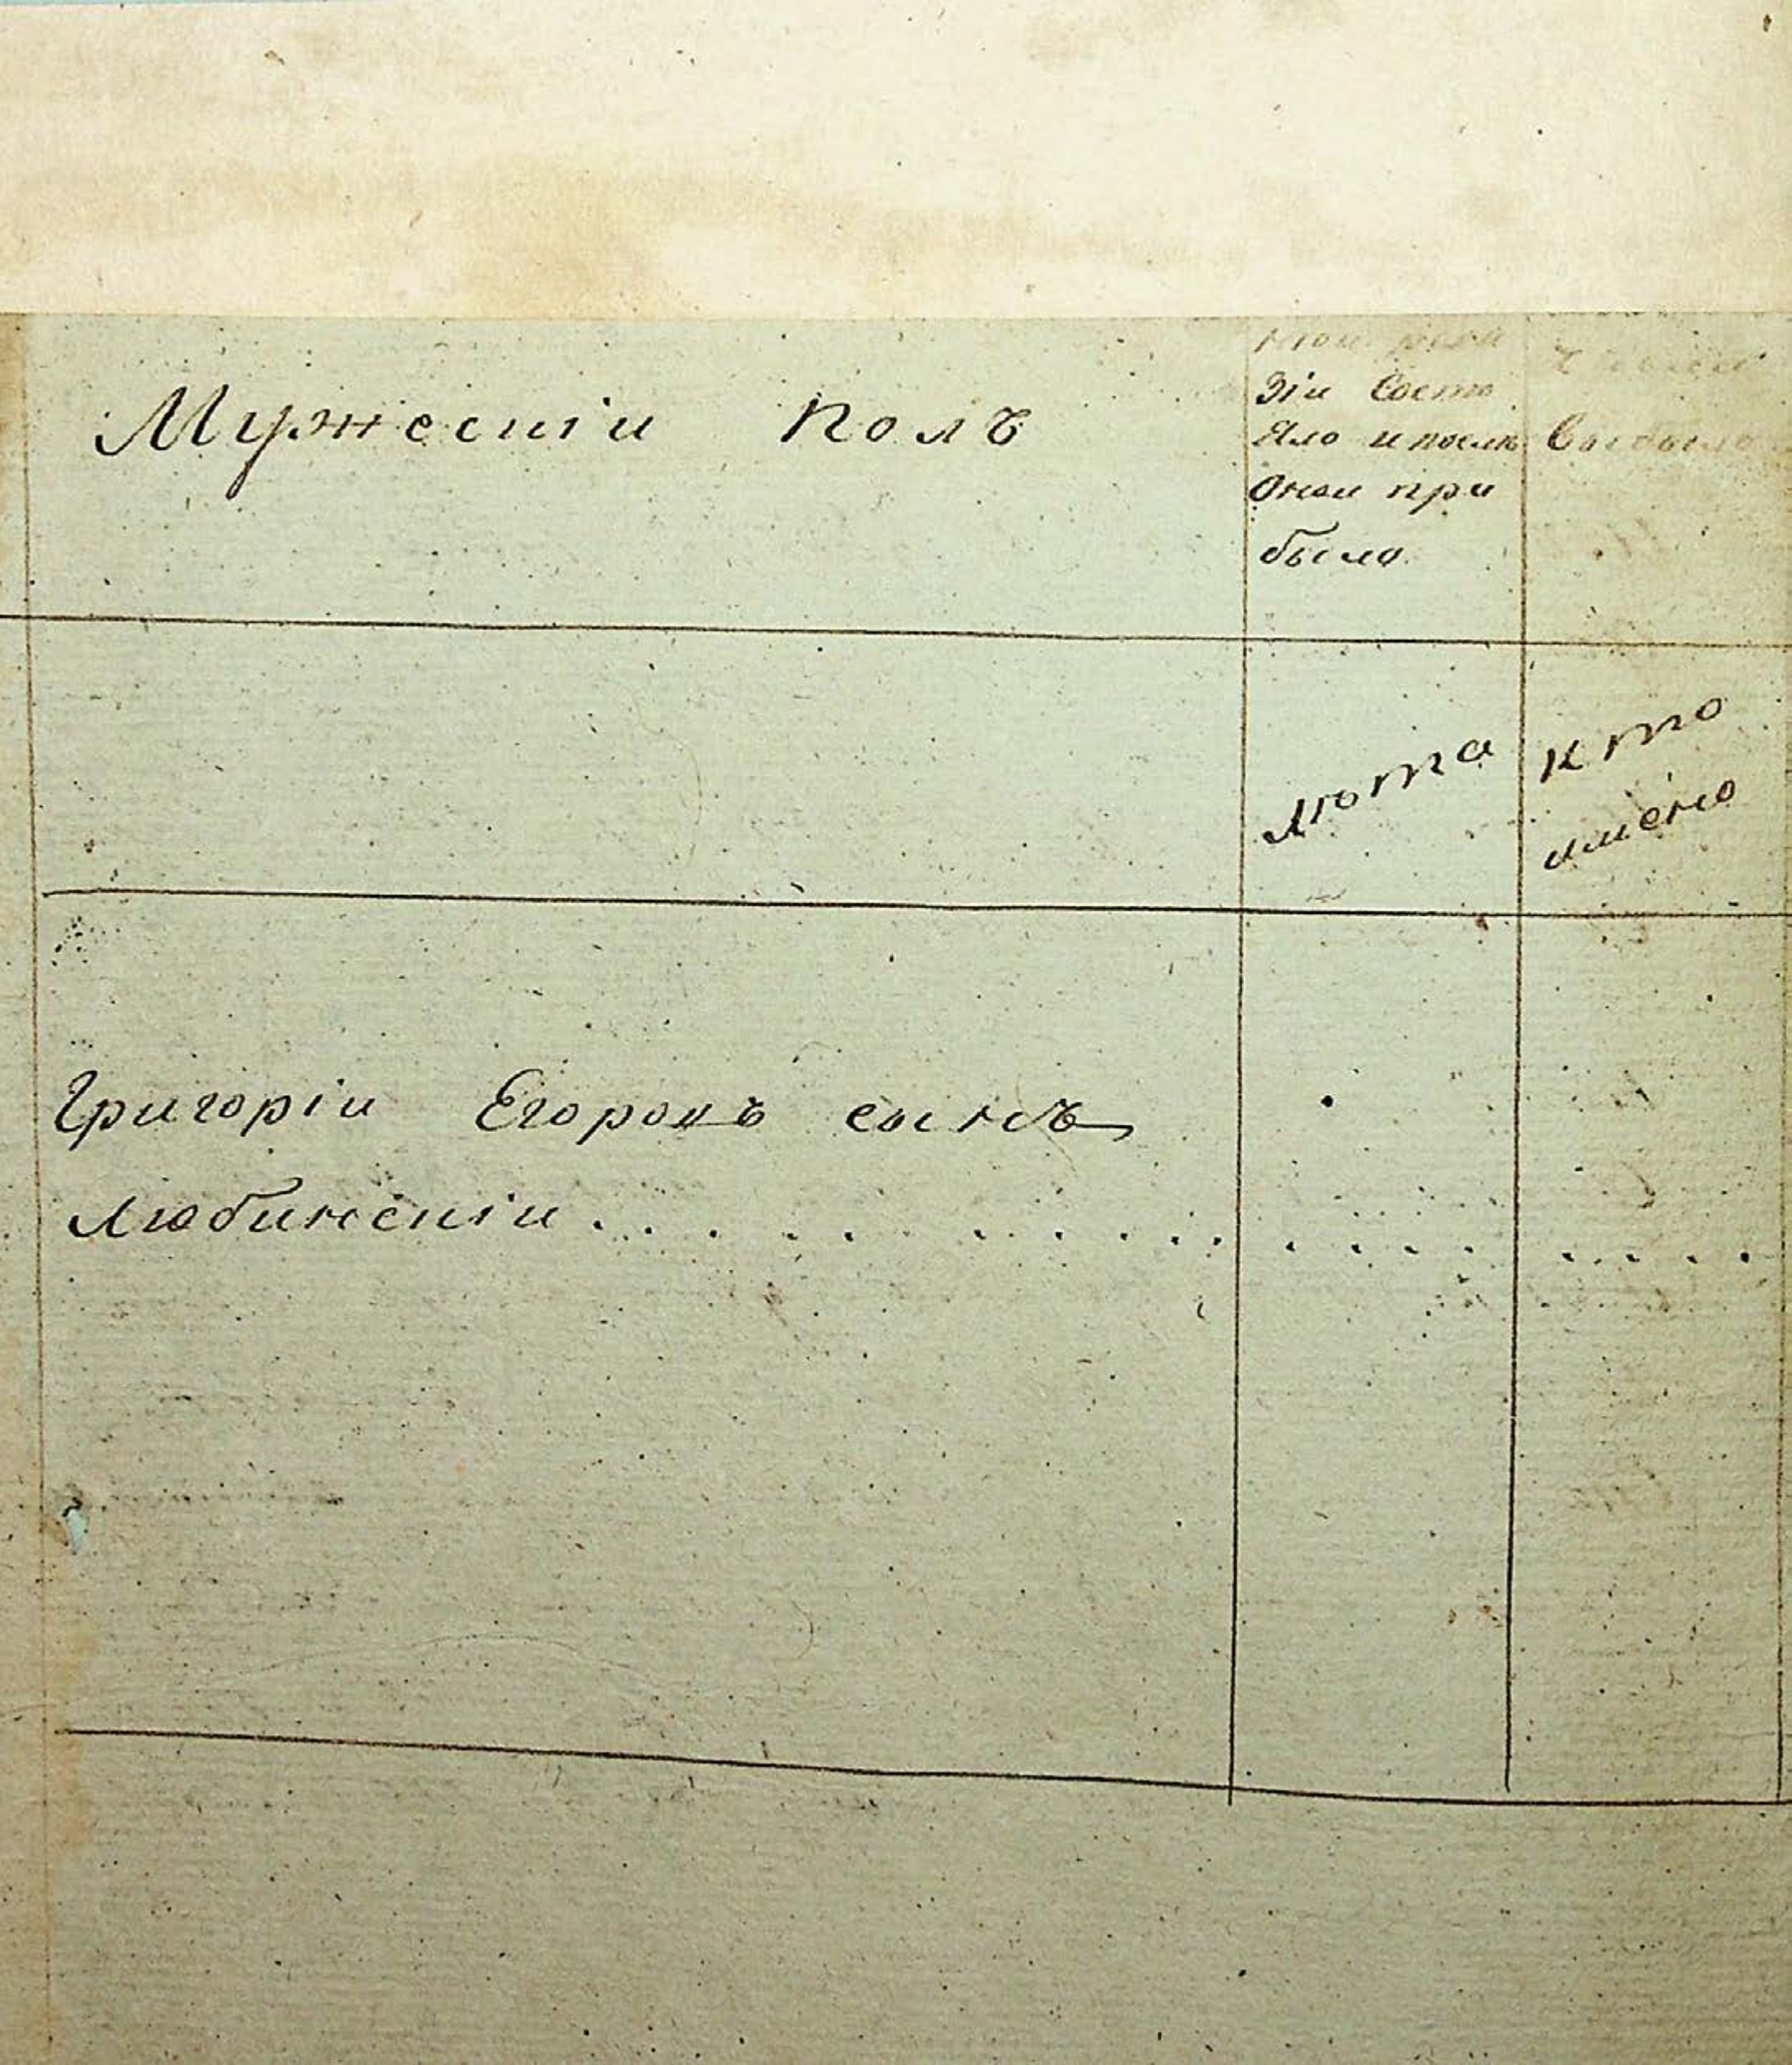 Мужескіи Полъ
зіи Состо
яло и послѣ
Оной при
было
выбыло
лѣта
кто
имено
Григоріи Егоровъ сынъ
Любинскіи